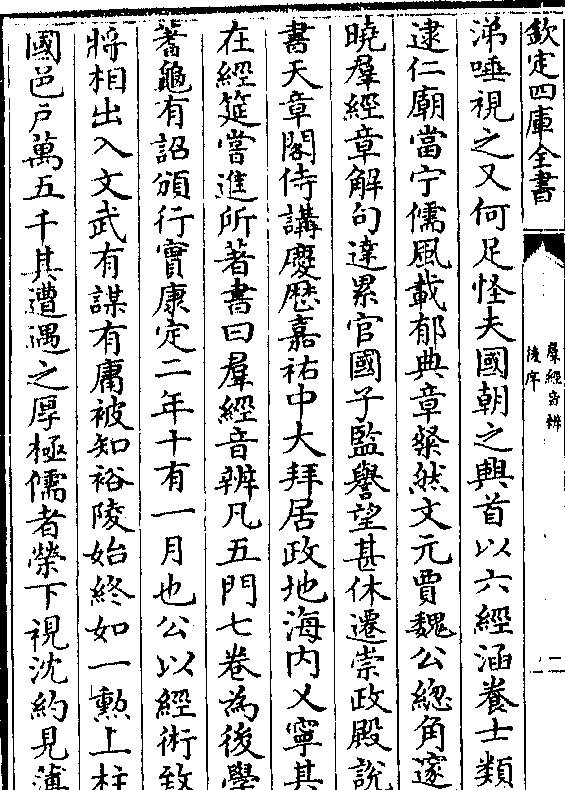 欽定四庫全書
羣經音辨
後序
二
涕唾視之又何足怪夫國朝之興首以六經涵養士類
逮仁廟當宁儒風載郁典章粲然文元賈魏公緫角邃
曉羣經章解句達累官國子監譽望甚休遷崇政殿說
書天章閣侍講慶歷嘉祐中大拜居政地海内乂寧其
在經筵嘗進所著書曰羣經音辨凡五門七卷為後學
蓍龜有詔頒行實康定二年十有一月也公以經術致
將相出入文武有謀有庸被知裕陵始終如一勲上柱
國邑戶萬五千其遭遇之厚極儒者榮下視沈約見薄